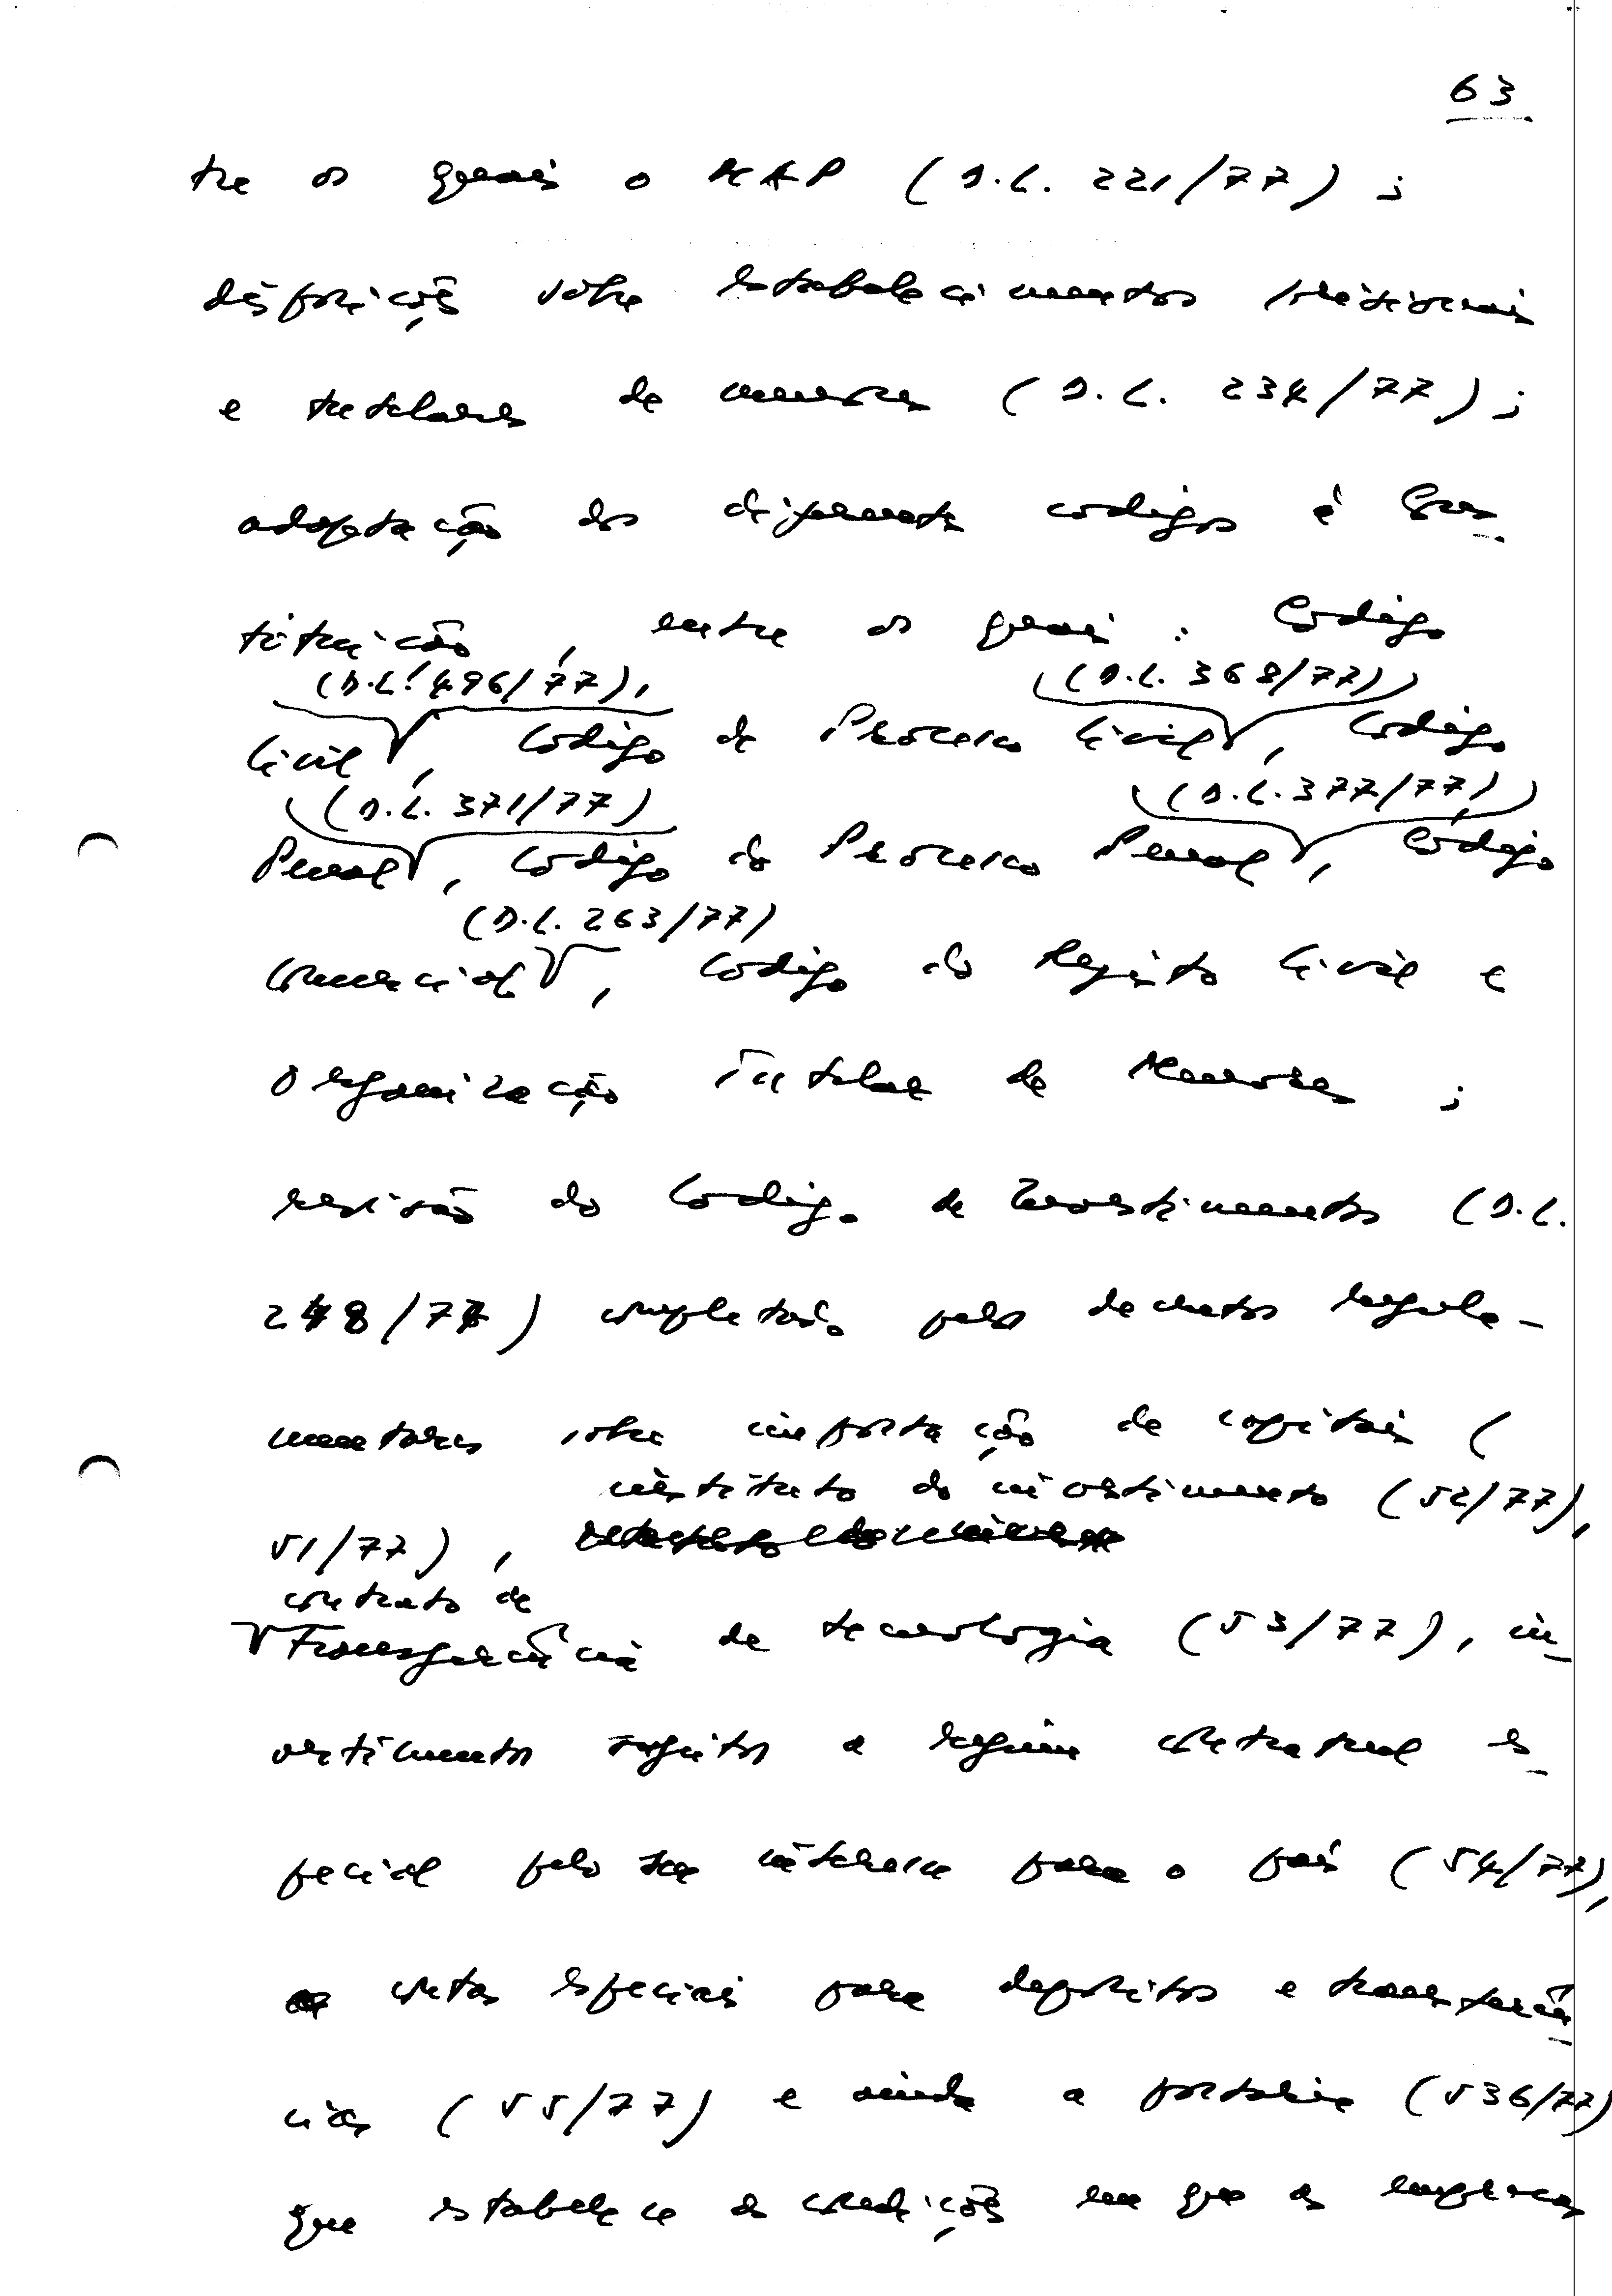 63
tre os quais o MAP (D.L. 221/77);
disposições sobre estabelecimentos prisionais
e tutelares de menores (D.L. 234/77);
adaptação dos diferentes codigos à Cons-
tituição, entre os quais: Codigo
(D.L. 496/77), (D.L. 368/77)
Civil, Codigo de Processo Civil, Codigo
(D.L. 371/77) (D.L. 377/77)
Penal, Codigo do Processo Penal, Código
(D.L. 263/77)
Comercial, Codigo do Registo Civil e
Organização Tutelar de Menores;
revisão do Codigo de Investimentos (D.L.
248/77) completado pelos decretos regula-
mentares sobre importação de capitais (
instituto do investimento (52/77),
51/77),
contrato de
Transferência de tecnologia (53/77), in-
vestimentos sujeitos a regime contratual es-
pecial pelo seu interesse para o país (54/77),
contas especiais para depositos e transferên-
cias (55/77) e ainda a portaria (536/77)
que estabelece as condições em que as empresas